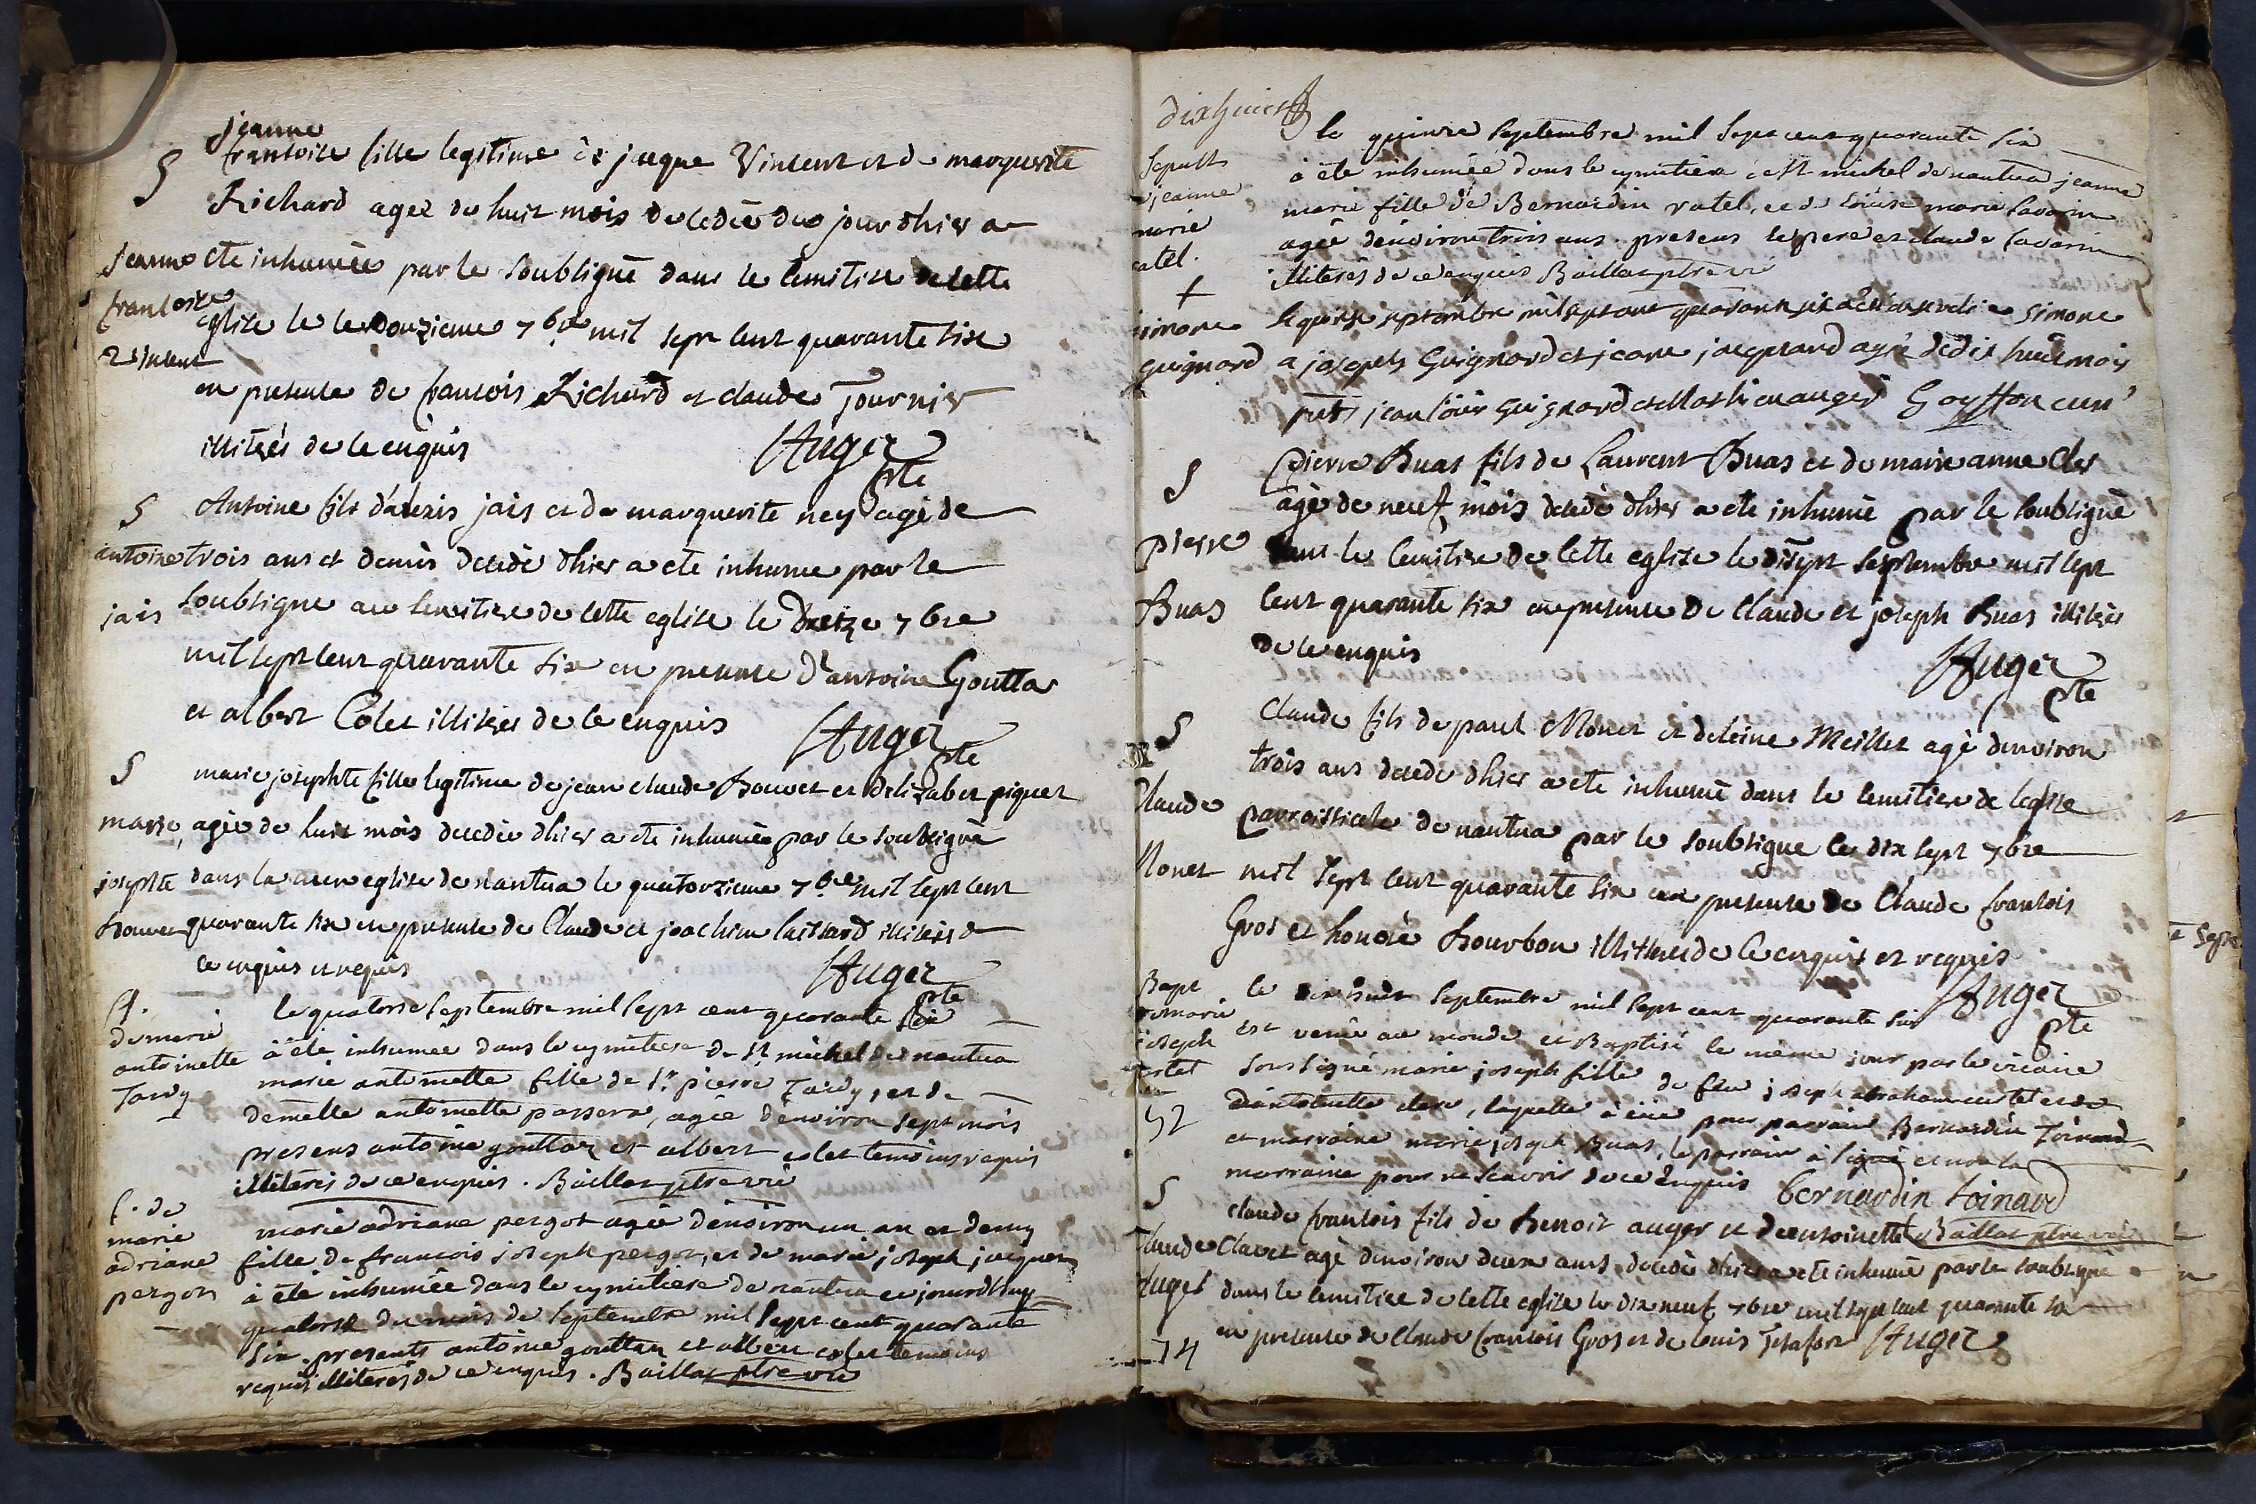 jeanne
S francoise fille legitime de jacque Vincent et de marguerite
Richard agee de huit mois decedée du jour dhier a
jeanne ete inhumée par le soubsigné dans le cemitire de cette
francoise eglise le douzieme 7bre mil sept cent quarante six
vincent
en presence de francois Richard et claude Tournier
illiterés de ce enquis Auger
pte
S Antoine fils d'alexis jais et de marguerite ney agé de
antoine trois ans et demis decedé dhier a ete inhume par le
jais soubsigne au cemitire de cette eglise le treize 7bre
mil sept cent quarante six en presence d'antoine Gouttar
et albert Colet illiterés de ce enquis Auger
pte
S marie josephte fille legitime de jean claude Bouvet et delizabet piquet
marie agée de huit mois decedée dhier a ete inhumée par le soubsigné
josephte dans la eglise de nantua le quatorzieme 7bre mil sept cent
Bouvet quarante six en presence de Claude et joachim illiterés de
ce enquis et requis Auger
pte
S. le quatorse septembre mil sept cent quarante six
de marie
antoinette à été inhumée dans le cymitiere de st michel de nantua
Tardy marie antoinette fille de sr pierre Tardy, et de
demelle antoinette passera, agée d'environ sept mois
presens antoine gouttar et albert colet temoins requis
illiterés de ce enquis. Baillat ptre vic
S. de
marie marie adriane pergot agée d'environ un an et demy
adriane fille de francois joseph pergot, et de marie joseph jacquet
pergot à été inhumée dans le cymitiere de nantua ce jourdhuy
quatorse du mois de septembre mil sept cent quarante
six. presents antoine gouttar et albert colet temoins
requis illiterés de ce enquis. Baillat ptre vic

dixhuict
le quinze septembre mil sept cent quarante six
Sepult à été inhumée dans le cymitiere de st michel de nantua jeanne
jeanne marie fille de Bernardin ratel, et de loüise marie savarin
marie agée d'environ trois ans. presens le pere et claude savarin
ratel. illiterés de ce enquis Baillat ptre vic
+
simone le quinze septembre mil sept cent quarante six a simone
guignard a joseph Guignard et jeane jacquard agé de dix huit mois
nts jean loüis guignard et Goyffon curé
S Pierre Buas fils de Laurent Buas et de marie anne Cler
agé de neuf mois decedé dhier a ete inhumé par le soubsigné
pierre dans le cemitire de cette eglise le septembre mil sept
Buas cent quarante six en presence de Claude et joseph Buas illiterés
de ce enquis Auger
pte
S Claude fils de paul Monet et deleine Meillet agé denviron
trois ans decede dhier a ete inhumé dans le cemitiere de leglise
Claude parroissiale de nantua par le soubsigne le dix sept 7bre
Monet mil sept cent quarante six en presence de Claude francois
Gros et honoré Bourbon illiterés de ce enquis et requis
Auger
pte
Bapt le dix huit septembre mil sept cent quarante six
de marie est venüe au monde et Baptisé le même jour par le vicaire
joseph soussigné marie joseph fille de feu joseph abraham et de
d'antoinette clere, laquelle à eüe pour parrain Bernardin Toinard
52 et marraine marie joseph Buas, le parrain à signé et non la
marraine pour ne scavoir de ce enquis bernardin toinard
Baillat ptre vic
S claude francois fils de Benoit auger et dantoinette
Claude Claret agé denviron deux ans decedé dhier a ete inhumé par le soubsigné
Auger dans le cemitire de cette eglise le dix neuf 7bre mil sept cent quarante six
74 en presence de Claude francois Gros et de louis Auger